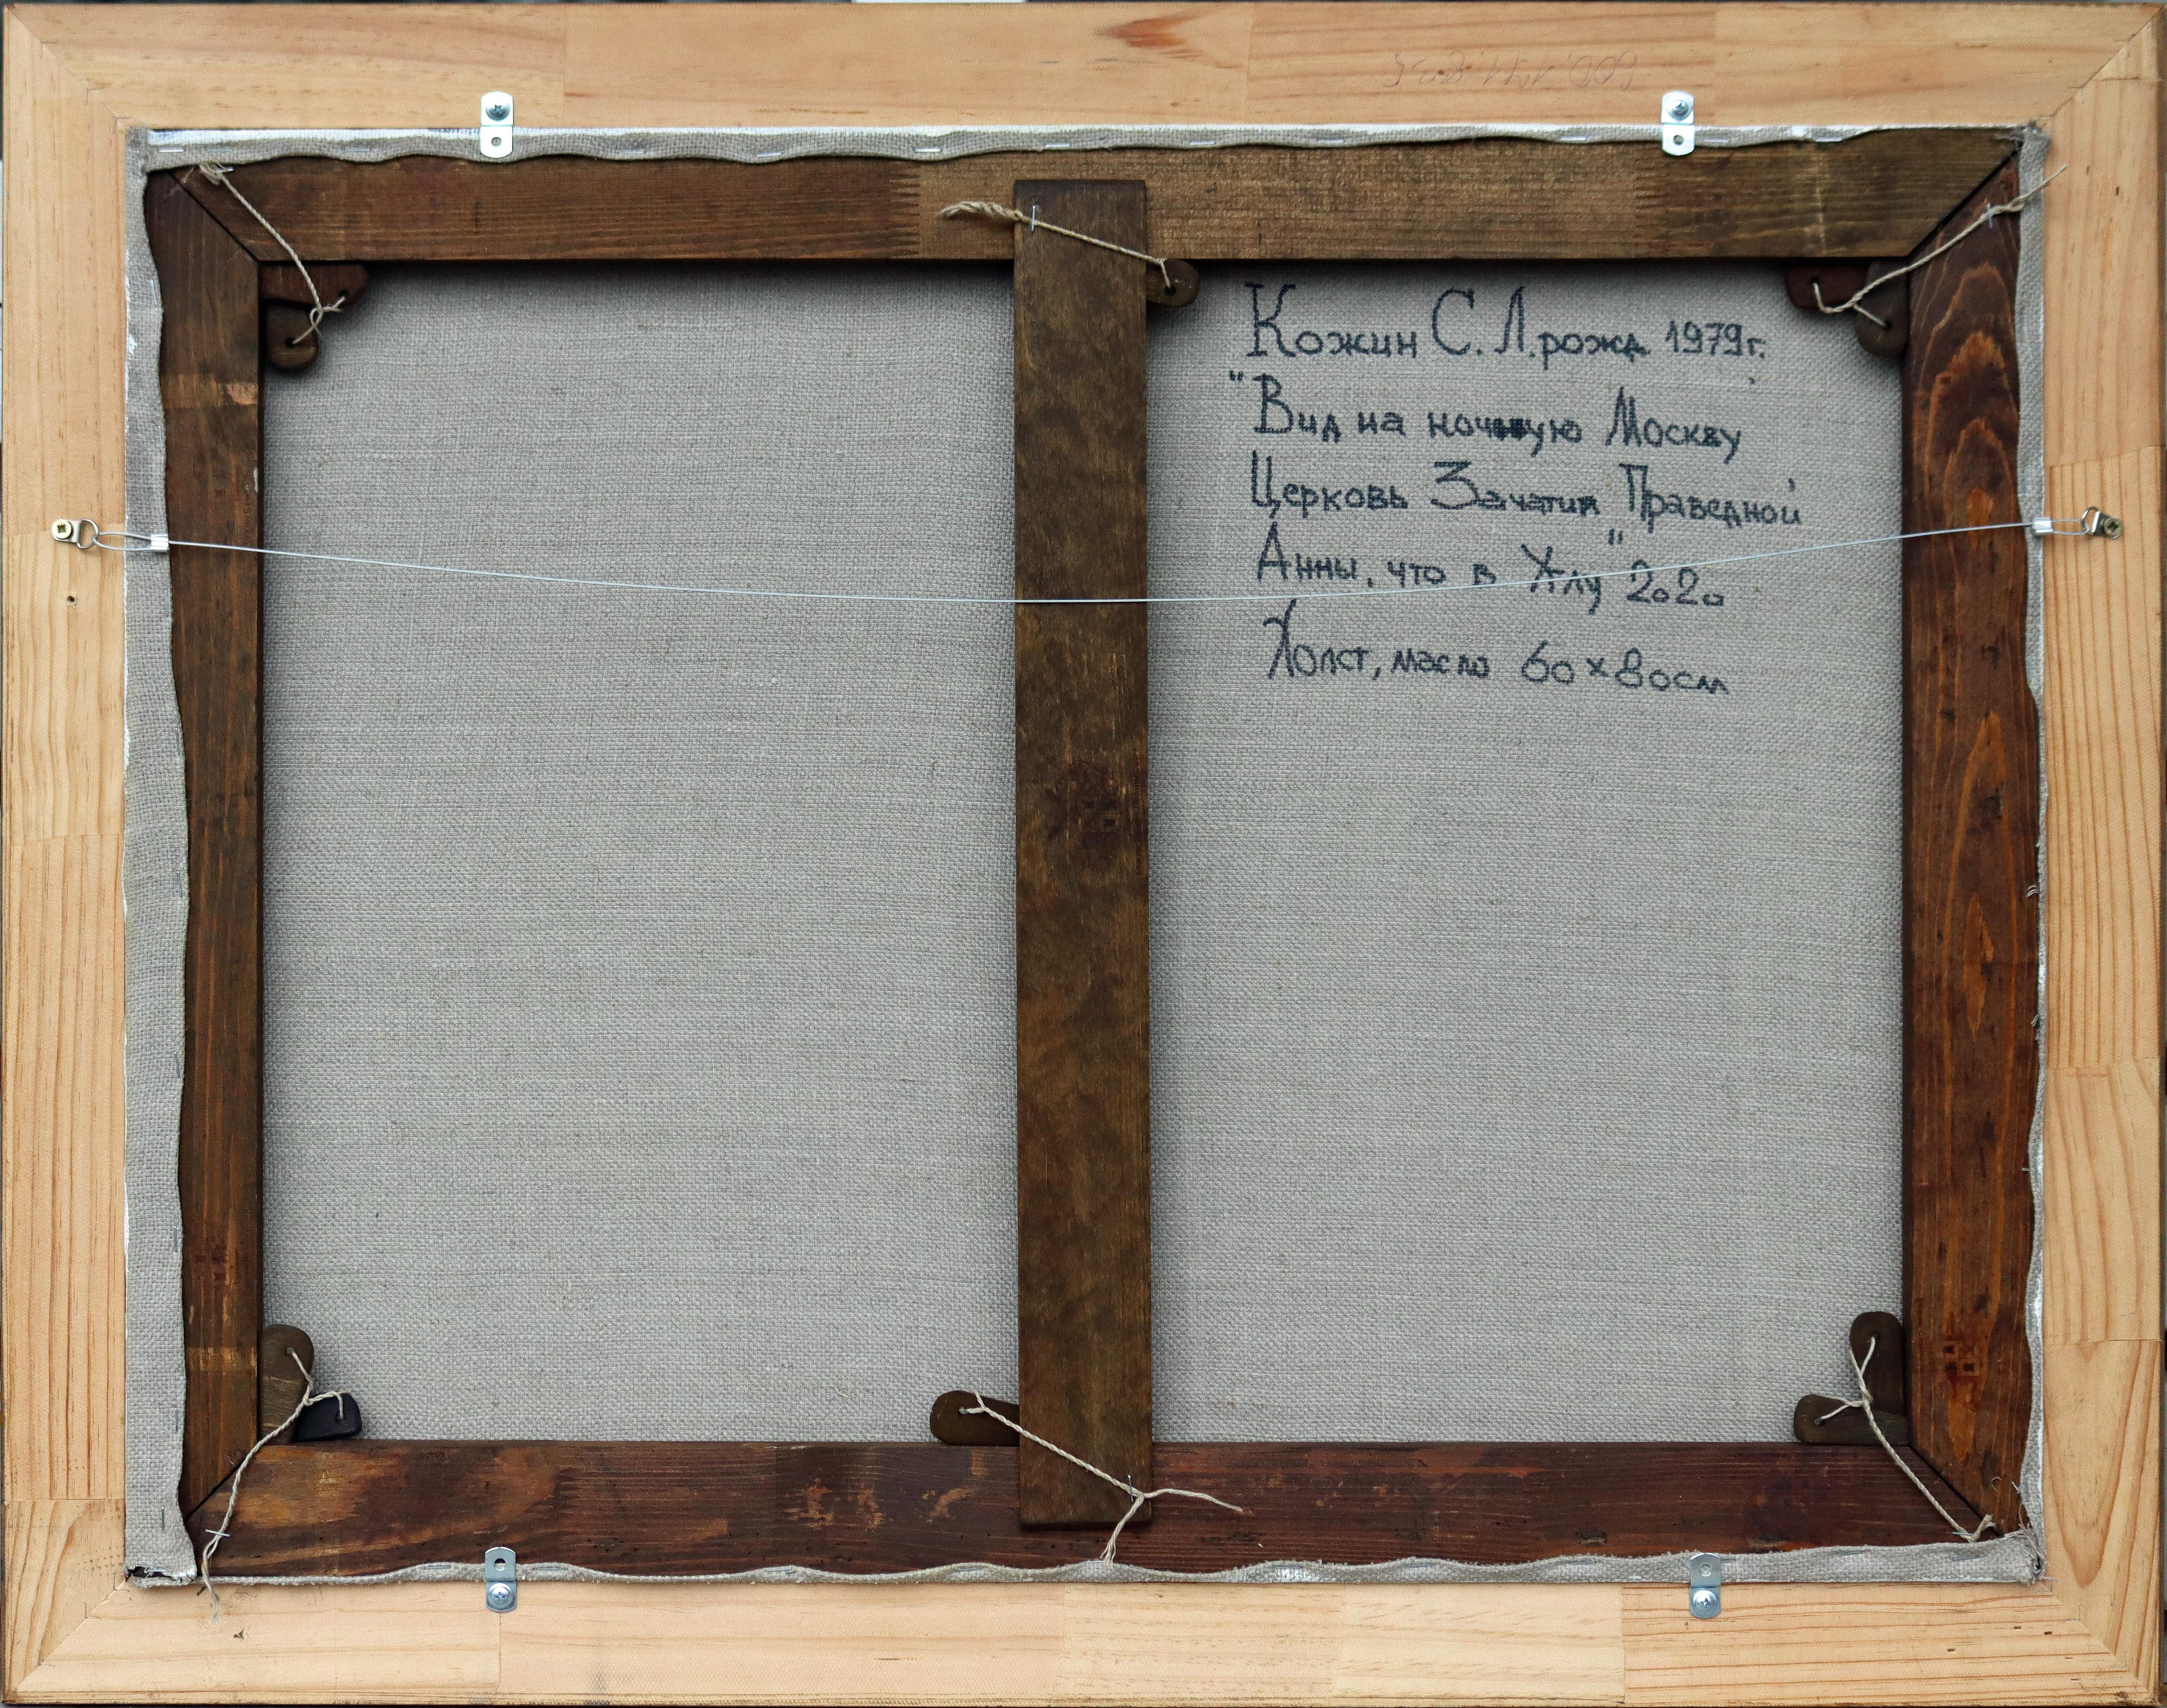 Кожин С. Л. рожд. 1979г.
"Вид на ночную Москву
Церковь Зачатия Праведной
Анны, что в Углу" 2020
Холст, масло 60×80см